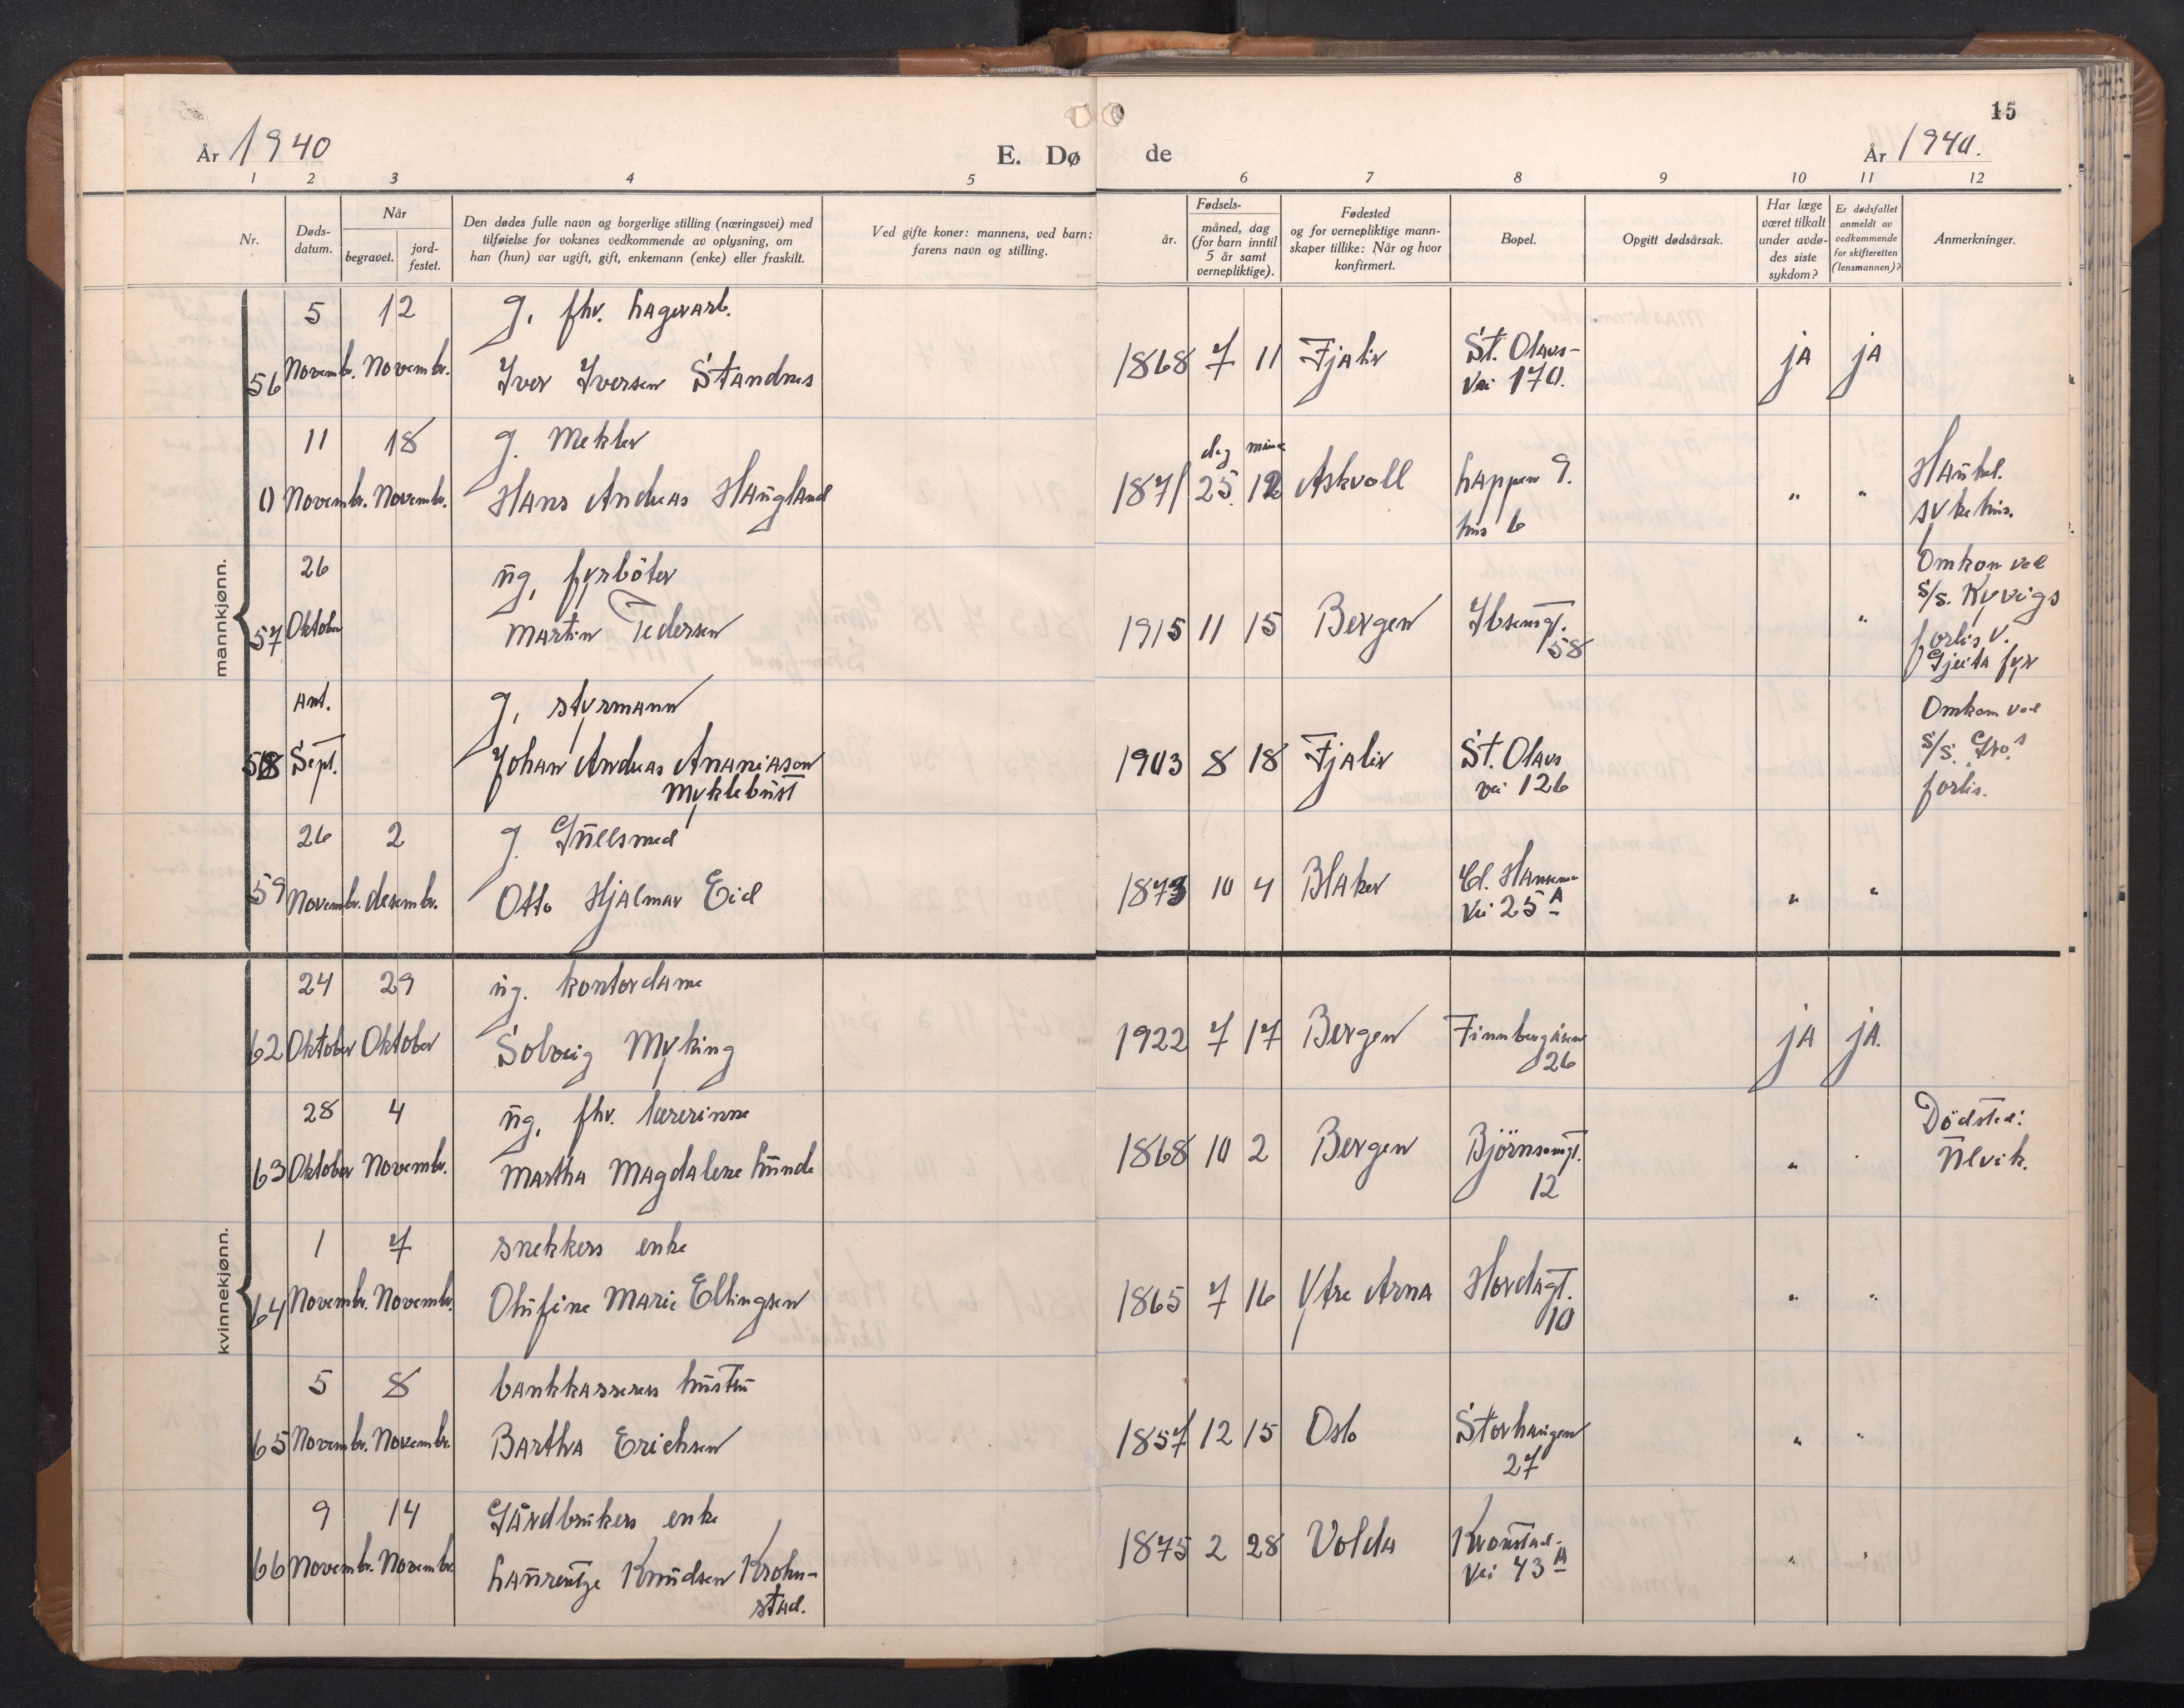 15
År 1940
E. Dø
de
År 1940.
1 2 3 4 5 6 7 8 9 10 11 12
Nr.
Døds-
datum.
Når
begravet.
jord-
festet.
Den dødes fulle navn og borgerlige stilling (næringsvei) med
tilføielse for voksnes vedkommende av oplysning, om
han (hun) var ugift, gift, enkemann (enke) eller fraskilt.
Ved gifte koner: mannens, ved barn:
farens navn og stilling.
Fødsels-
år.
måned, dag
(for barn inntil
5 år samt
vernepliktige).
Fødested
og for vernepliktige mann-
skaper tillike: Når og hvor
konfirmert.
Bopel.
Opgitt dødsårsak.
Har læge
været tilkalt
under avdø-
des siste
sykdom?
Er dødsfallet
anmeldt av
vedkommende
for skifteretten
(lensmannen)?
Anmerkninger.
mannkjønn.
5 12 g. fhv. hagearb.
56 Novembr. Novembr. Iver Iversen Standnes 1868 7 11 Fjaler St. Olavs-
vei 170. ja ja
11 18 g. Mekler dag
0 Novembr. Novembr. Hans Andreas Haugland 1871 25 12 Askvoll
hus 6 " " Haukel.
sykehus.
26 ug. fyrbøter
57 Oktober Martin Pedersen 1915 11 15 Bergen Ibsensgt.
58 " Omkom ved
S/S. Kyvigs
forlis v.
Gjeita fyr
Ant. g. styrmann
58 Sept. " Johan Andreas Ananiason
Myklebust 1903 8 18 Fjaler St. Olavs
vei 126 Omkom ved
S/S. Gro's
forlis.
26 2 g. Gullsmed
59 Novembr. desembr. Otto Hjalmar Eid 1873 10 4 Blaker Cl. Hansens
vei 25 A " "
kvinnekjønn.
24 29 ug. kontordame
62 Oktober Oktober Solveig Myking 1922 7 17 Bergen Finnbergåsen
26 ja ja.
28 4 ug. fhv. lærerinne
63 Oktober Novembr. Martha Magdalene Lunde 1868 10 2 Bergen Bjørnsonsgt.
12 " " Dødsted:
Ulvik.
1 7 snekkers enke
64 Novembr. Novembr. Olufine Marie Ellingsen 1865 7 16 Ytre Arna Hordagt.
10 " "
5 8 bankkasserers hustru
65 Novembr. Novembr. Bartha Erichsen 1857 12 15 Oslo Storhaugen
27 " "
9 14 Gårdbrukers enke
66 Novembr. Novembr. Laurentze Knudsen Krohn-
stad. 1875 2 28 Volda Kronstad-
vei 43 A " "